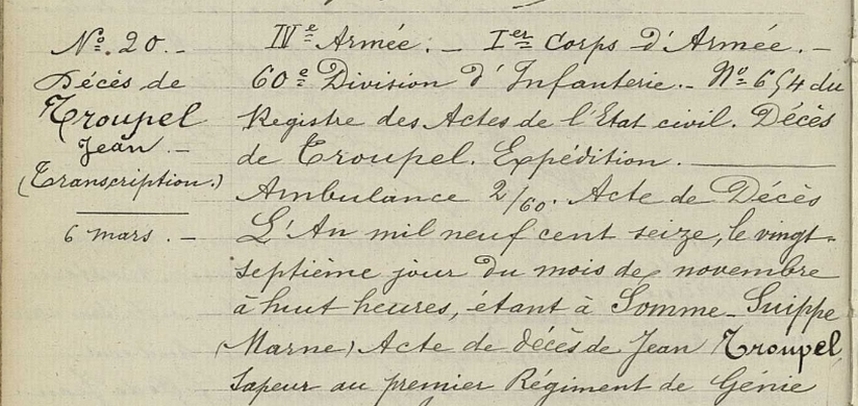 Nº. 20. -
Décès de
Troupel
Jean. -
(Transcription.)
6 mars. -
IVe Armée. - Ier Corps d'Armée. -
60e Division d'Infanterie. - Nº 654 du
Registre des Actes de l'Etat civil. Décès
de Troupel. Expédition.
Ambulance 2/60. Acte de Décès
L'An mil neuf cent seize, le vingt-
septième jour du mois de novembre
à huit heures, étant à Somme-Suippe
(Marne) Acte de décès de Jean Troupel,
Sapeur au premier Régiment de Génie